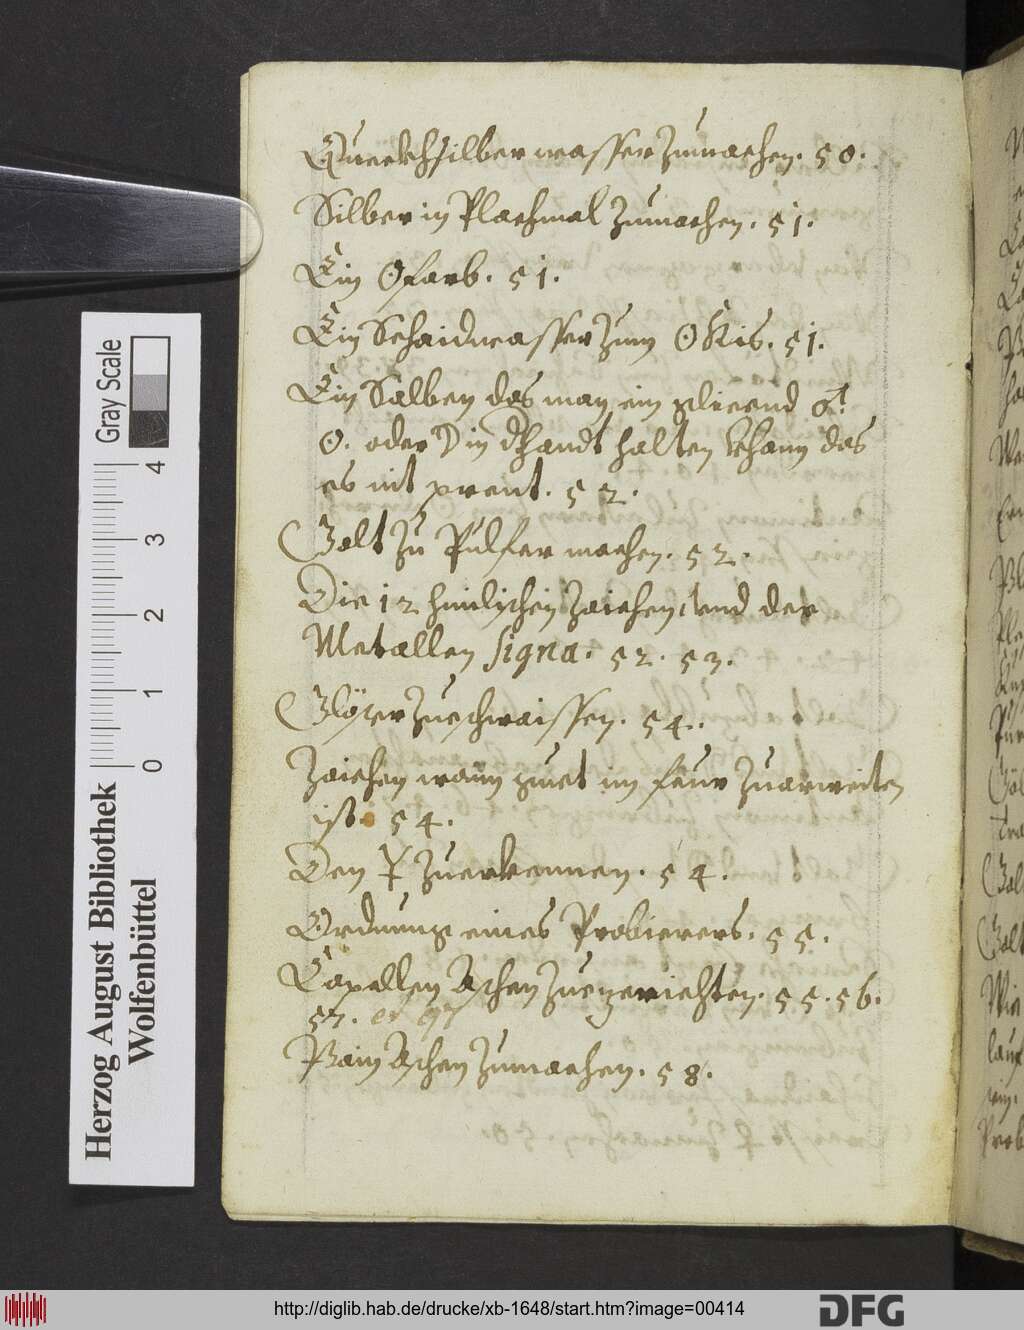 Queckhsilber wasser Zumachen. 50.
Silber in Plachmal Zumachen. 51.
Ein ☉farb. 51.
Ein Schaidwasser Zum ☉ Kis. 51.
Ein Salben das man ein glieend ♂.
☉. oder ☽ in dhandt halten khann das
es nit prent. 52.
Galt Zu Pulfer machen. 52.
Die 12 himlischen Zaichen, und der
Metallen signa. 52. 53.
Gläser Zueschwaissen. 54.
Zaichen wann guet im feur Zuarweiten
ist. 54.
Den Zuerkennen. 54.
Ordnung eines Probierers. 55.
Capellen Aschen Zuegerichten. 55. 56.
57. et 97
Pain Aschen Zumachen. 58.
Gray Scale
0 1 2 3 4
Herzog August Bibliothek
Wolfenbüttel
http://diglib.hab.de/drucke/xb-1648/start.htm?image=00414
DFG